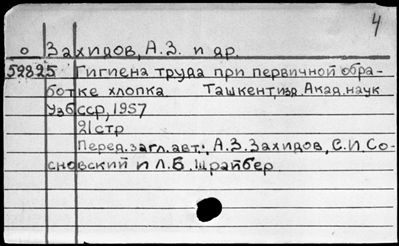 4
о Захидов, А.З. и др.
59825 Гигиена труда при первичной обра-
ботке хлопка Ташкент, изд. Акад. наук
Узб ССР, 1957
21 стр
Перед. загл. авт.: А.З. Захидов, С.И. Со-
сновский и Л.Б. Шрайбер